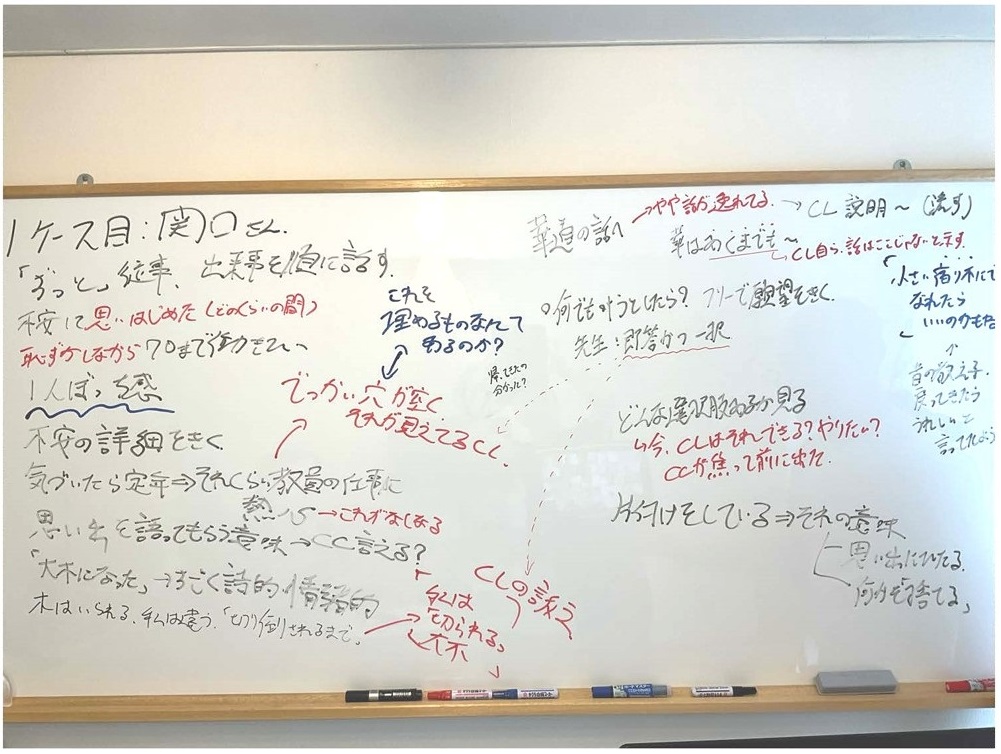 1ケース目:関口さん.
「ずっと」従事、出来事を順に話す.
不安に思いはじめた(どのくらいの間)
恥ずかしながら70まで働きたい
1人ぼっち感
不安の詳細をきく
気づいたら定年⇒それくらい教員の仕事に
熱心→これがなくなる
思い出を語ってもらう意味→CC言える?
「大木になった」→すごく詩的、情緒的
木はいられる、私は違う.「切り倒されるまで」
「私は
切られる」
大木
CLの訴え
これを
埋めるものなんて
あるのか?
でっかい穴が空く
それが見えてるCL.
華道の話へ→やや話が逸れてる.→CL説明〜(流す)
華はあくまでも〜
→CL自ら、話はここじゃないと示す.
○何でも叶うとしたら? フリーで願望をきく.
先生:即答かつ一択
どんな選択肢あるか見る
今、CLはそれできる?やりたい?
CCが焦って前に出た.
片付けをしている⇒それの意味
思い出にひたる.
何かを「捨てる」
「小さい宿り木にで
なれたら
いいのかもな
↑
昔の教え子.
戻ってきたら
うれしいと
言ってたよう